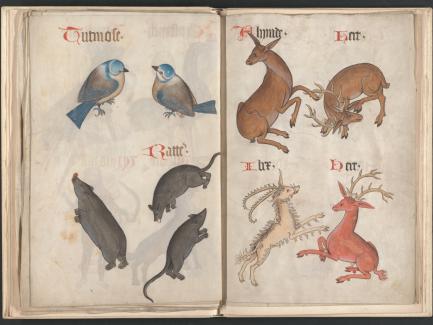 Titmose.
Ratte.
Hynde.
Hert.
Ibex.
Hert.